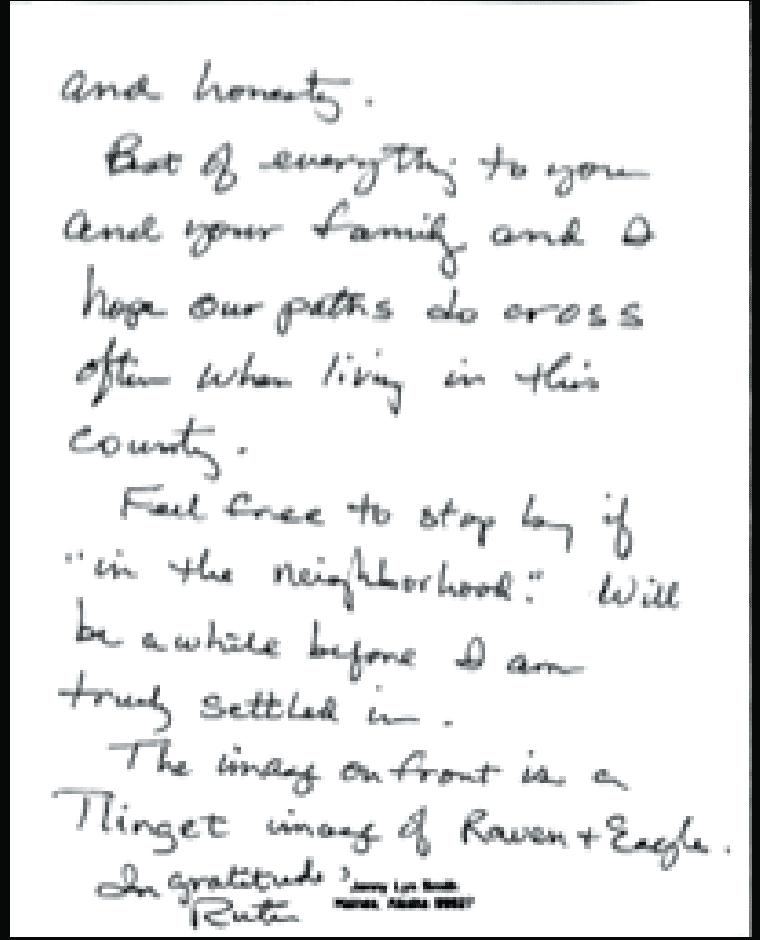 and honesty.
Best of everything to you
and your family and I
hope our paths do cross
often when living in this
county.
Feel free to stop by if
"in the neighborhood". Will
be a while before I am
truly settled in.
The image on front is a
Tlinget image of Raven + Eagle.
In gratitude,
Jenny Lyn Smith
Haines, Alaska 99827